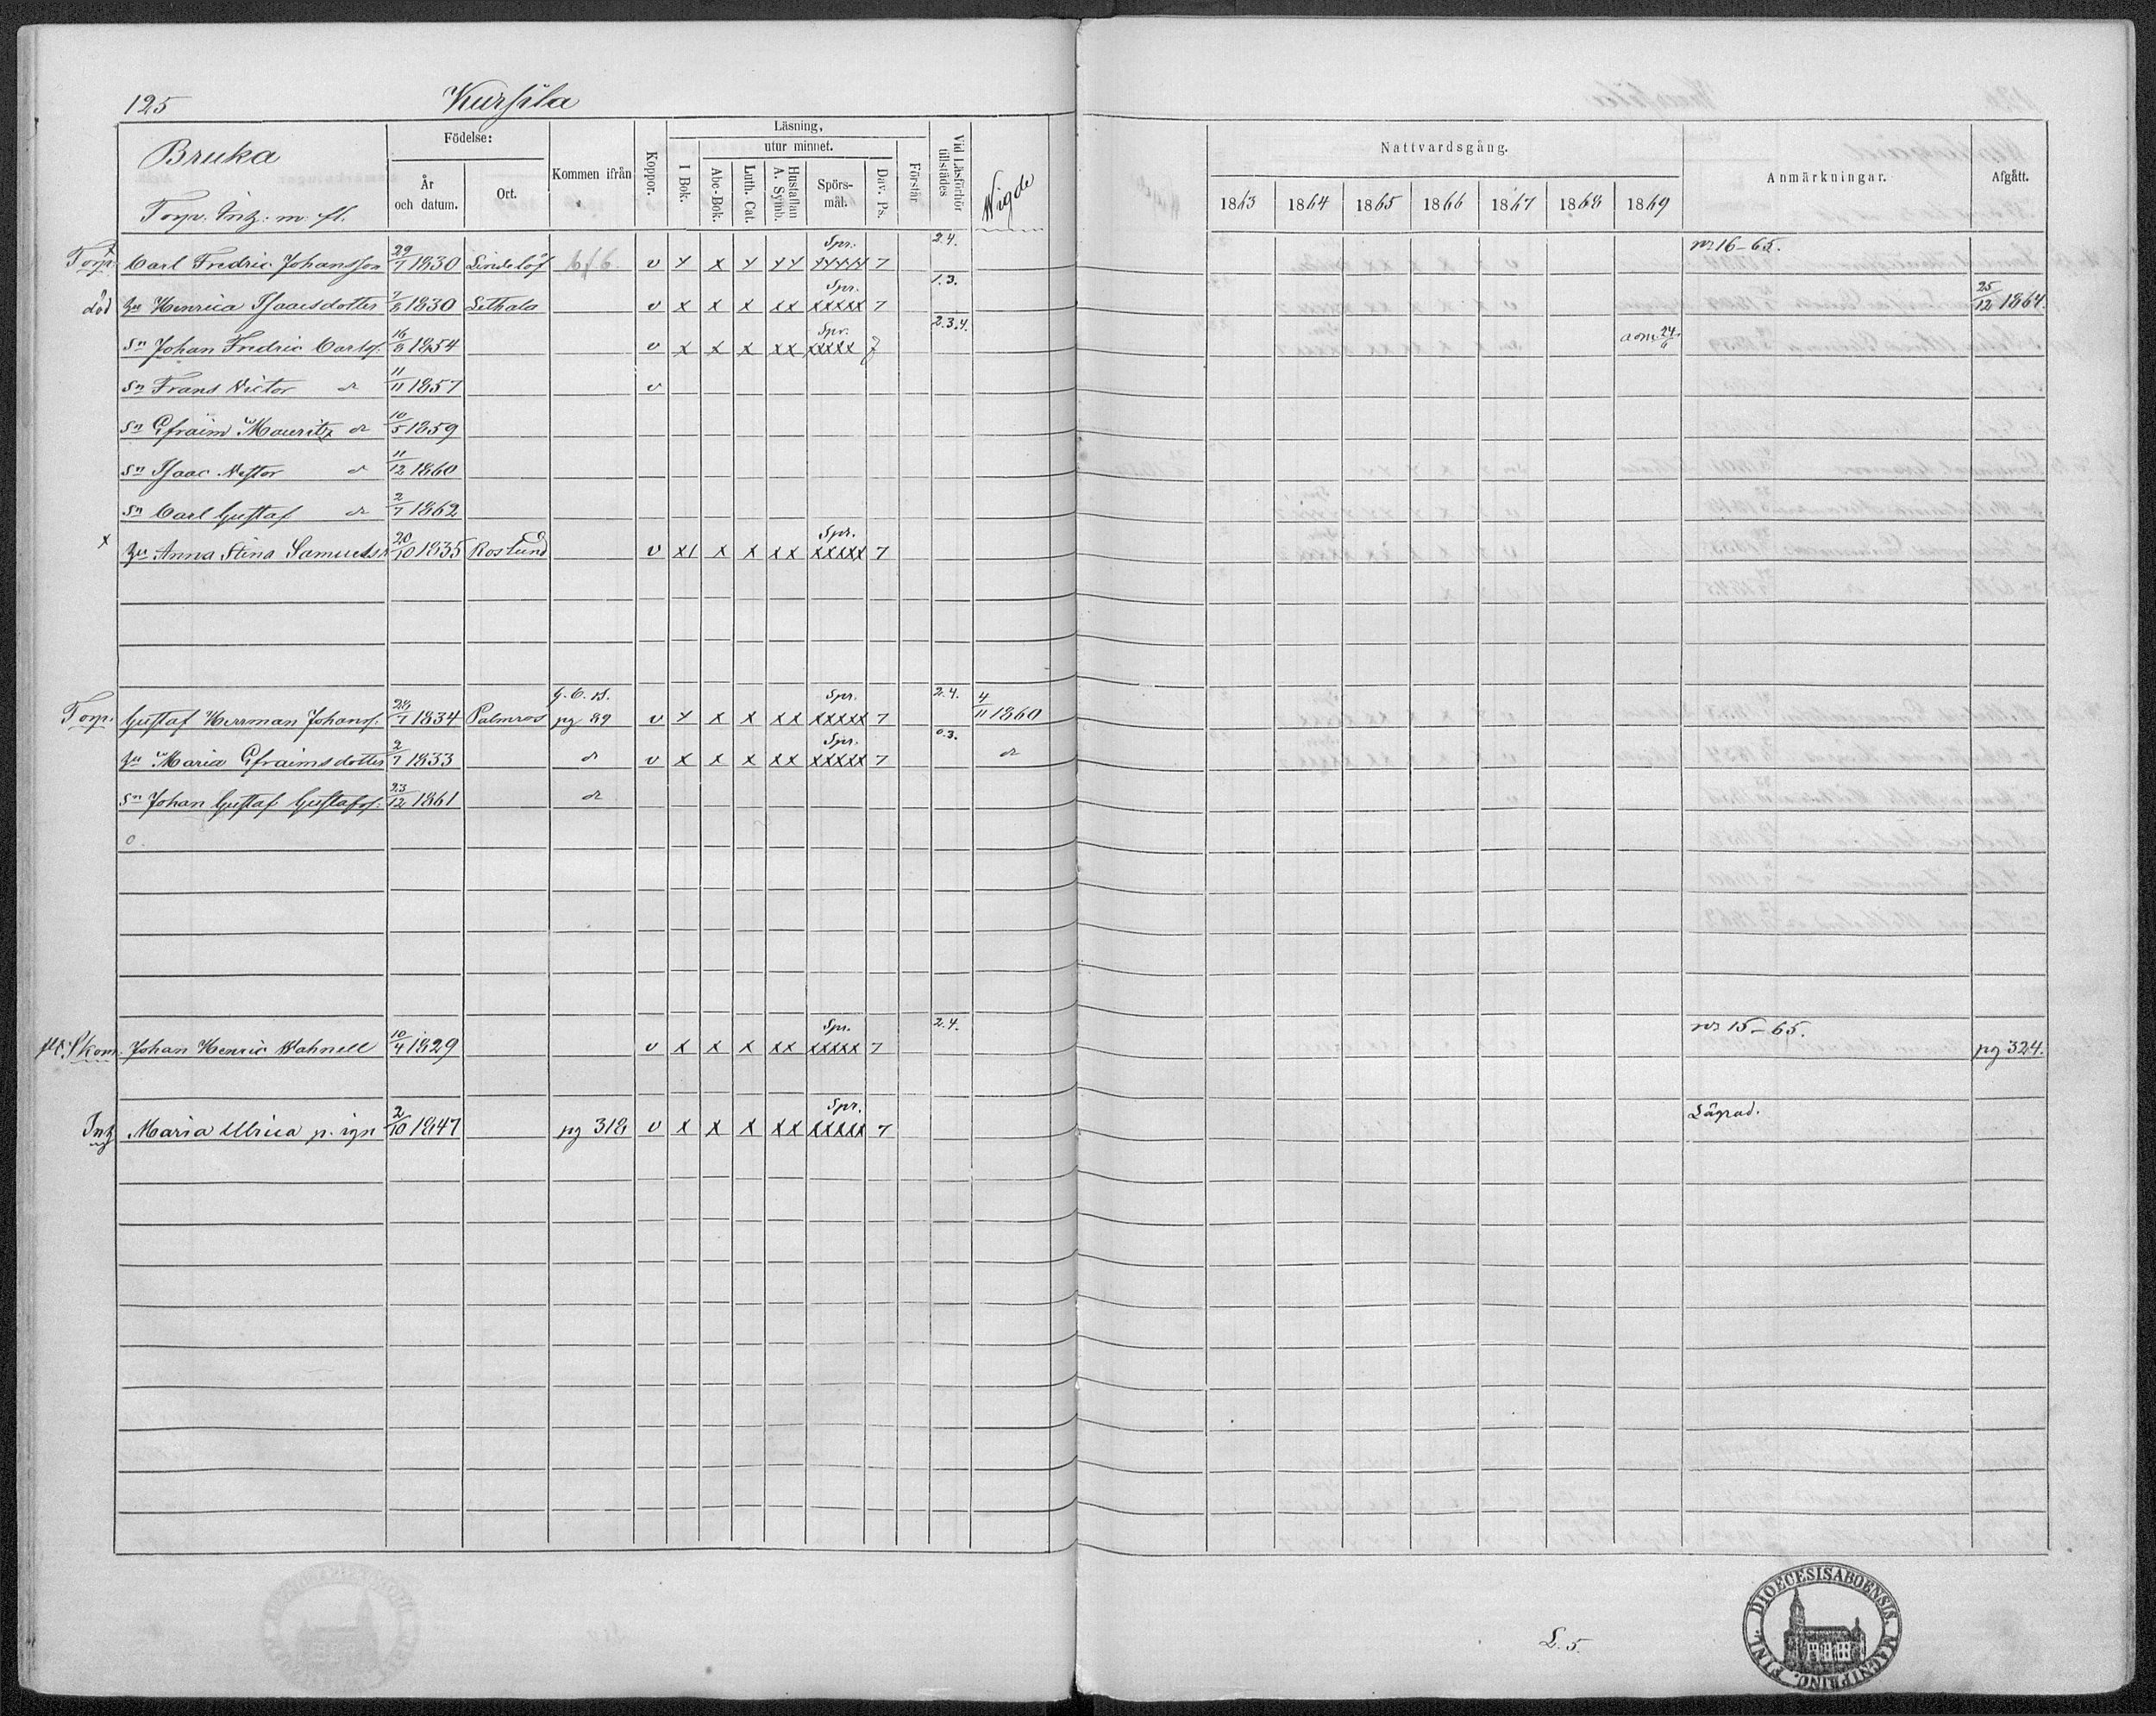 125 Kursila
Bruka
Torp. Inh: m. fl.
Födelse:
År och datum.
Ort.
Kommen ifrån
Koppor.
Läsning,
I Bok.
utur minnet.
Abc-Bok.
Luth. Cat.
Hustaflan A. Symb.
Spörs-mål.
Dav. Ps.
Förstår
Vid Läsförhör tillstädes
Wigde
Nattvardsgång.
1863 1864 1865 1866 1867 1868 1869
Anmärkningar.
Afgått.
Spr. 2.4. nr 16-65.
Torp. Carl Fredric Johansson 29/7 1830 Lindelöf v x x x xx xxxxx 7
Spr. 1.3.
död Hu Henrica Isaacsdotter 7/8 1830 Lethala v x x x xx xxxxx 7 25/12 1864.
Spr. 2.3.4.
sn Johan Fredric Carlss. 16/8 1854 v x x x xx xxxxx 7 adm 24/6
sn Frans Victor dr 11/11 1857 v
sn Efraim Mauritz dr 10/5 1859
sn Isaac Nestor dr 11/12 1860
sn Carl Gustaf dr 2/7 1862
Spr.
x Hu Anna Stina Samuelsdr 20/10 1835 Roslund v x x x xx xxxxx 7
g. b. Spr. 2.4.
Torp. Gustaf Herrman Johanss. 28/7 1834 Palmros pg 89 v x x x xx xxxxx 7 4/11 1860
Spr. 0.3.
Hu Maria Efraimsdotter 2/7 1833 dr v x x x xx xxxxx 7 dr
sn Johan Gustaf Gustafss. 23/12 1861 dr
o.
Spr. 2.4. nr 15-65.
Skom. Johan Henric Wahnell 10/4 1829 v x x x xx xxxxx 7 pg 324.
Spr. Lägrad.
Inh Maria Ulrica p. ign 2/10 1847 pg 318 v x x x xx xxxxx 7
L. 5.
DIOECESIS ABOENSIS. MAGNI PRINC. FINL.